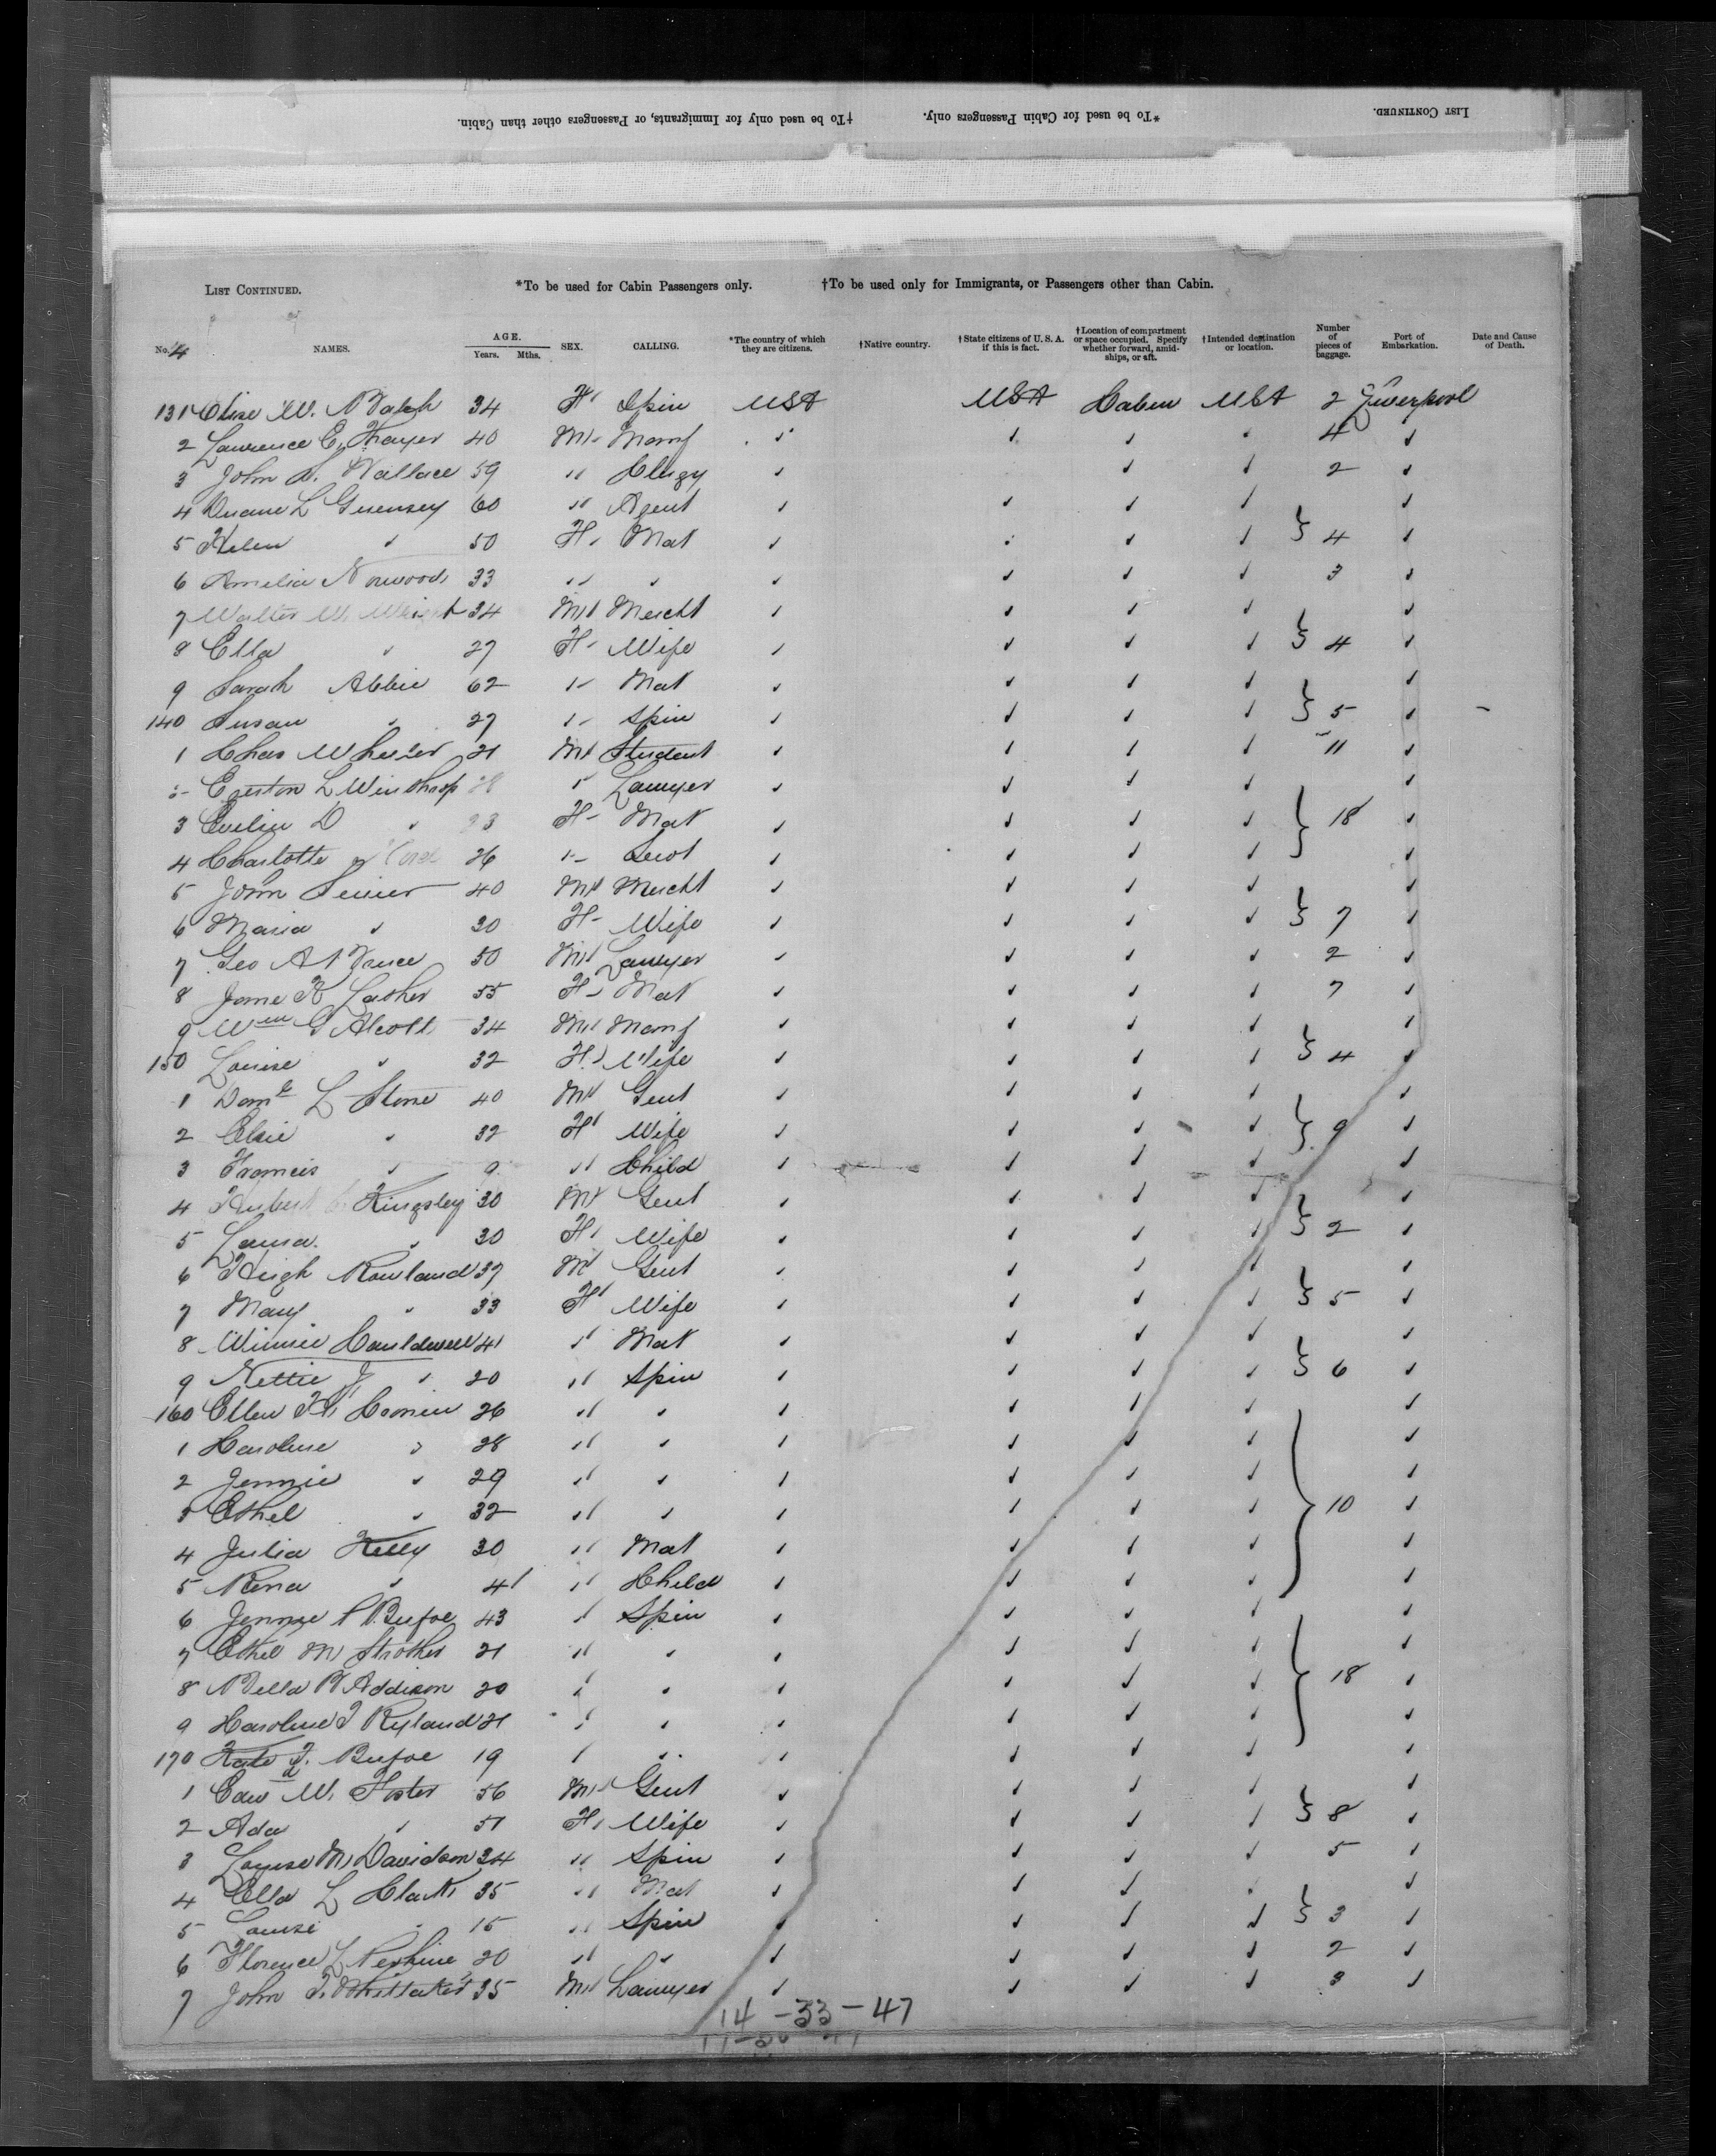 †To be used only for Immigrants, or Passengers other than Cabin. *To be used for Cabin Passengers only. LIST CONTINUED.
LIST CONTINUED. *To be used for Cabin Passengers only. †To be used only for Immigrants, or Passengers other than Cabin.
No. 4 NAMES. AGE. Years. Mths. SEX. CALLING. *The country of which they are citizens. †Native country. †State citizens of U. S. A. if this is fact. †Location of compartment or space occupied. Specify whether forward, amidships, or aft. †Intended destination or location. Number of pieces of baggage. Port of Embarkation. Date and Cause of Death.
131 Elise W. Balch 34 F Spin USA USA Cabin USA 2 Liverpool
2 Lawrence E. Thayer 40 M Manf 4
3 John S. Wallace 59 " Clergy 2
4 Duane L Guernsey 60 " Agent
5 Helen " 50 F Mat 4
6 Amelia Norwood 33 " " 3
7 Walter W. Wright 34 M Mercht
8 Ella " 27 F Wife 4
9 Sarah Abbie 62 " Mat
140 Susan " 27 " Spin 5
1 Chas Wheeler 21 M Student 11
2 Egerton L Winthrop " Lawyer
3 " F Mat 18
4 Charlotte 26 " Servt
5 John 40 M Mercht
6 Maria " 30 F Wife 7
7 Geo A Vance 50 M Lawyer 2
8 Jane Lasher 55 F Mat 7
9 Wm G Alcott 34 M Manf
150 Louise " 32 F Wife 4
1 L Stone 40 M Gent
2 Elsie " 32 F Wife 9
3 Francis " 9 " Child
4 Hubert Kingsley 30 M Gent
5 Laura " 30 F Wife 2
6 Hugh Rowland 37 M Gent
7 Mary " 33 F Wife 5
8 Winnie Cauldwell 41 " Mat
9 Nettie J " 20 " Spin 6
160 Ellen 26 " "
1 Caroline " 28 " "
2 Jennie " 29 " "
3 Ethel " 32 " " 10
4 Julia Kelly 30 " Mat
5 Rena " 4 " Child
6 Jennie Bufoe 43 " Spin
7 Ethel M Strother 21 " "
8 Bella B Addison 20 " " 18
9 Caroline T Ryland 21 " "
170 Kate T. Bufoe 19 " "
1 Edwd W. Foster 56 M Gent
2 Ada " 51 F Wife 8
3 Louise M Davidson 34 " Spin 5
4 Ella L Clark 35 " Mat
5 Louise " 15 " Spin 3
6 Florence L Perkins 20 " " 2
7 John T. Whittaker 35 M Lawyer 3
14 - 33 - 47